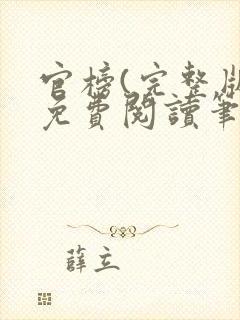 官榜(完整版
免費閱讀筆
薛立